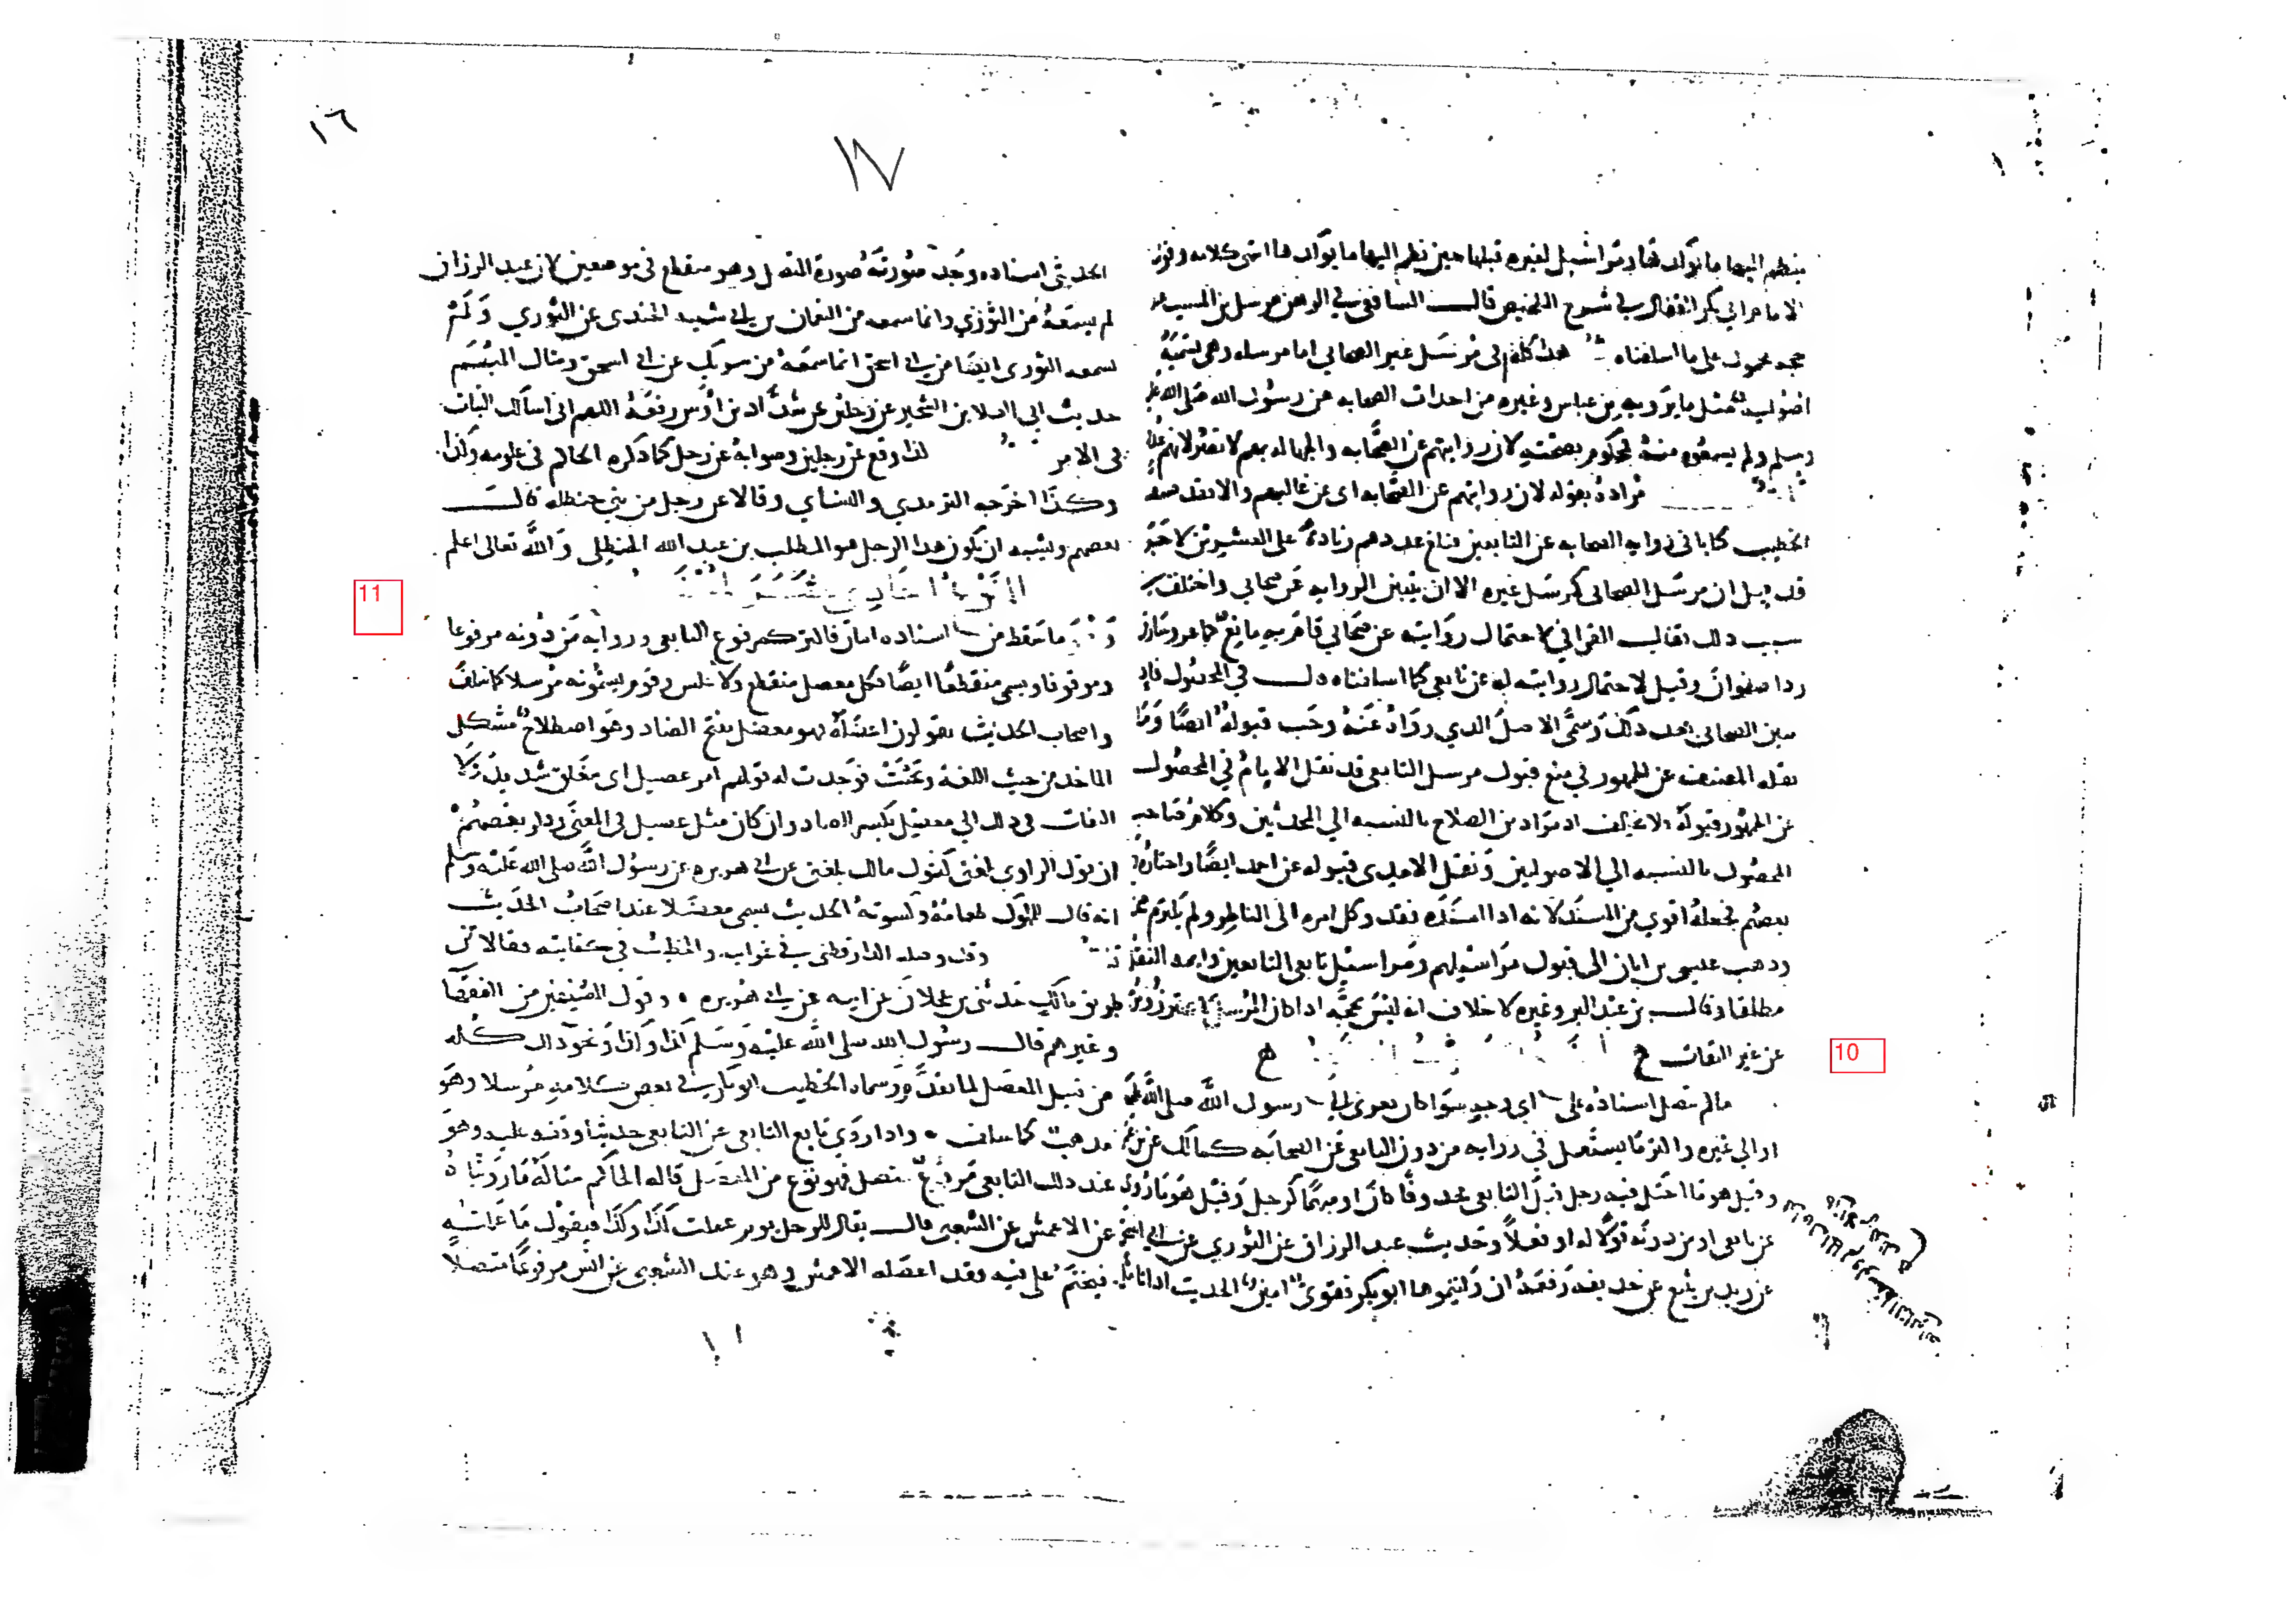 ١٦
١٧
ينظم اليها ما يوكدها ومراسيل لغيره قبلها حين نظم اليها ما يوكدها انتهى كلامه وقول
الامام ابي بكر القفال في شرح التلخيص قال الشافعي في الرهن مرسل بن المسيب
حجة محمول على ما اسلفناه هذا كله في مرسل غير الصحابي اما مرسله وهي تسمية
اصولية مثل ما يرويه بن عباس وغيره من احداث الصحابه عن رسول الله صلى الله عليه
وسلم ولم يسمعوه منه فمحكوم بصحته لان روايتهم عن الصحابه والجهاله بهم لا تضر لانهم عدول
مراده بقوله لان روايتهم عن الصحابه اى عن غالبهم والا فقد صنف
الخطيب كتابا فى رواية الصحابه عن التابعين فبلغ عددهم زيادة على العشرين لا جرم
قد قيل ان مرسل الصحابى كمرسل غيره الا ان يتبين الروايه عن صحابي واختلف في
سبب ذلك فقال القرافي لاحتمال روايته عن صحابي قام به مانع كماعز وسارق
ردا صفوان وقيل لاحتمال روايته له عن تابعي كما اسلفناه في المحصول فاذا
بين الصحابى بعد ذلك وسمى الاصل الذي رواه عنه وجب قبوله ايضا وما
نقله المصنف عن الجمهور في منع قبول مرسل التابعي قد نقل الامام في المحصول
عن الجمهور قبوله ولا تخالف اذ مراد بن الصلاح بالنسبه الي المحدثين وكلام صاحب
المحصول بالنسبه الي الاصوليين ونقل الامدى قبوله عن احمد ايضا واختاره
بعضهم فجعله اقوي من المسند لانه اذا اسنده فقد وكل امره الى الناظر ولم يلتزم صحته
وذهب عيسى بن ابان الى قبول مراسيلهم ومراسيل تابعى التابعين وايمه النقل
مطلقا وقال بن عبد البر وغيره لا خلاف انه ليس بحجة اذا كان المرسل يحترز ويرسل
عن غير الثقات
ما لم يتصل اسناده على اي وجه سوا كان يعزى الى رسول الله صلى الله عليه
او الي غيره واكثر ما يستعمل في رواية من دون التابعى عن الصحابه كمالك عن بن عمر
وقيل هو ما اختل فيه رجل قبل التابعى محذوفا كان او مبهما كرجل وقيل هو ما روى
عن تابعى او من دونه قولا له او فعلا وحديث عبد الرزاق عن الثوري عن ابي اسحق
عن زيد بن يثيع عن حذيفه رفعه ان وليتموها ابو بكر فقوى امين الحديث اذا تامل
الحديثى اسناده وجد صورته صورة المتصل وهو منقطع في موضعين لان عبد الرزاق
لم يسمعه من الثوري وانما سمعه من النعمان بن ابي شيبه الجندى عن الثوري ولم
يسمعه الثورى ايضا من ابي اسحق انما سمعه من شريك عن ابي اسحق ومثال المبهم
حديث ابي العلا بن الشخير عن رجلين عن شداد بن اوس رفعه اللهم انى اسالك الثبات
فى الامر كذا وقع عن رجلين وصوابه عن رجل كما ذكره الحاكم فى علومه وكذا
وكذا اخرجه الترمدي والنساي وقالا عن رجل من بني حنظله قال
بعضهم ويشبه ان يكون هذا الرجل هو المطلب بن عبد الله الحنظلى والله تعالى اعلم
11
النوع الحادي عشر المعضل
ما سقط من اسناده اثنان فاكثر كمرفوع التابعى ورواية من دونه مرفوعا
وموقوفا ويسمى منقطعا ايضا فكل معضل منقطع ولا عكس وقوم يسمونه مرسلا كما سلف
واصحاب الحديث يقولون اعضله فهو معضل بفتح الضاد وهو اصطلاح مشكل
الماخذ من حيث اللغة وبحثت فوجدت له قولهم امر عضيل اى مغلق شديد ولا
التفات في ذلك الي معضل بكسر الضاد وان كان مثل عضيل في المعنى وذكر بعضهم
ان قول الراوي بلغني كقول مالك بلغنى عن ابي هريره عن رسول الله صلى الله عليه وسلم
انه قال للمملوك طعامه وكسوته الحديث يسمى معضلا عند اصحاب الحديث
وقد وصله الدارقطنى في غرايبه والخطيب في كفايته فقالا من
طريق مالك حدثنى بن عجلان عن ابيه عن ابي هريره وقول المصنفين من الفقها
وغيرهم قال رسول الله صلى الله عليه وسلم كذا وكذا ونحو ذلك كله
10
من قبيل المعضل لما تقدم وسماه الخطيب ابو بكر في بعض كلامه مرسلا وهو
مذهب كما سلف واذا روي تابع التابعى عن التابعى حديثا وقفه عليه وهو
عند ذلك التابعى مرفوع متصل فهو نوع من المعضل قاله الحاكم مثاله ما رويناه
عن الاعمش عن الشعبي قال يقال للرجل يوم عملت كذا وكذا فيقول ما عملته
فيختم على فيه فقد اعضله الاعمش وهو عند الشعبى عن انس مرفوعا متصلا